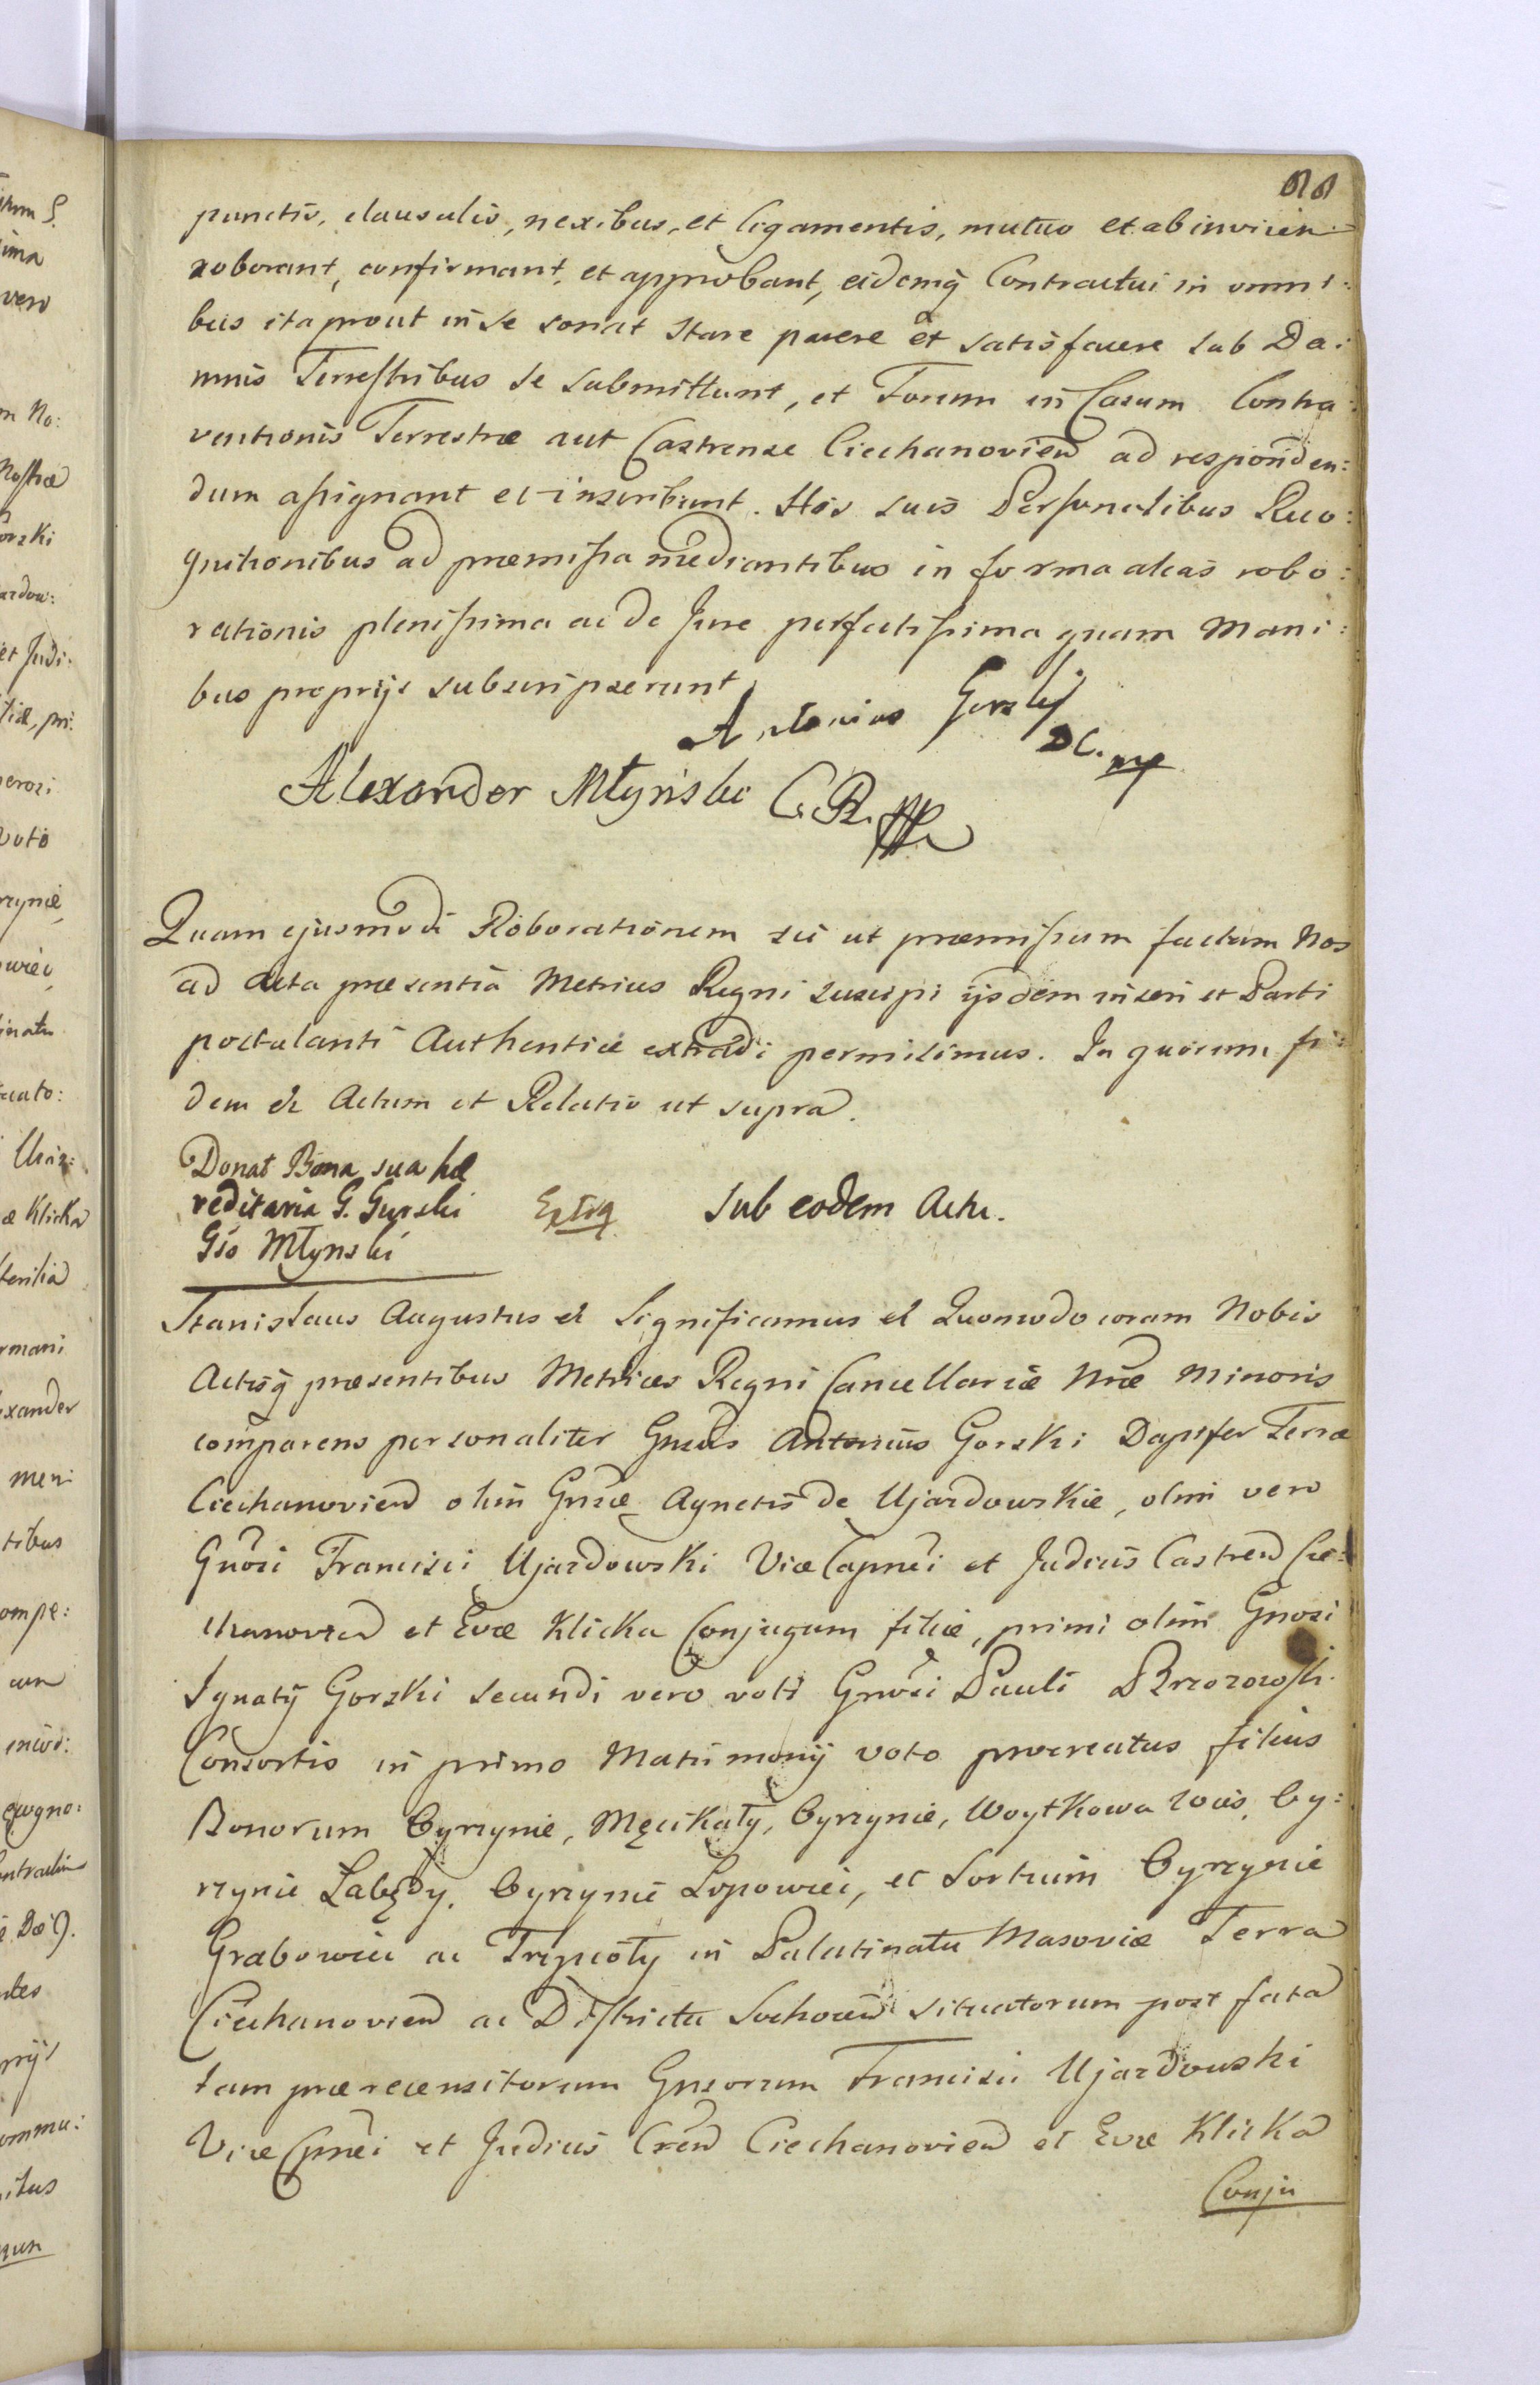 88
punctis, clausulis, nexibus, et ligamentis, mutuo et ab invicem
roborant, confirmant, et approbant, eidemq Contractui in omni:
bus ita prout in se sonat stare parere et satisfacere sub Da:
mnis Terrestribus se submittunt, et Forum in Casum Contra:
ventionis Terrestre aut Castrense Ciechanovien ad responden:
dum assignant et inscribunt. His suis Personalibus Reco:
gnitionibus ad præmissa mediantibus in forma alias robo:
rationis plenissima ac de Jure perfectissima quam Mani:
bus proprijs subscripserunt
Antonius Gorski
D C. mp
Alexander Młynski C. R. mp
Quam ejusmodi Roborationem sic ut præmissum factam Nos
ad Acta præsentia Metrices Regni suscipi ijsdem inseri et Parti
postulanti Authentice extradi permisimus. In quorum fi:
dem et Actum et Relatio ut supra.
Donat Bona sua hæ
reditaria G. Gurski
Gso Młynski
Extra
Sub eodem Actu.
Stanislaus Augustus et Significamus et Quomodo coram Nobis
Actisq præsentibus Metrices Regni Cancellariæ Nræ Minoris
comparens personaliter Gnsus Antonius Gorski Dapifer Terræ
Ciechanovien olim Gnsæ Agnetis de Ujazdowskie, olim vero
Gnosi Francisci Ujazdowski ViceCapnei et Judicis Castren Cie:
chanovien et Evæ Klicka Conjugum filiæ, primi olim Gnosi
Ignatij Gorski secundi vero voti Gnosi Pauli Brzozowski
Consortis in primo Matrimonij voto procreatus filius
Bonorum Gyrzynie, Męcikały, Gyrzynie, Woytkowa wies, Gy:
rzynie Łabędy, Gyrzynie Lipowiec, et Sortium Gyrzynie
Grabowiec ac Trzpioły in Palatinatu Masoviæ Terra
Ciechanovien ac Districtu Sochocin situatorum post fata
tam prærecensitorum Gnsorum Francisci Ujazdowski
Vice Cpnei et Judicis Cren Ciechanovien et Evæ Klicka
Conju